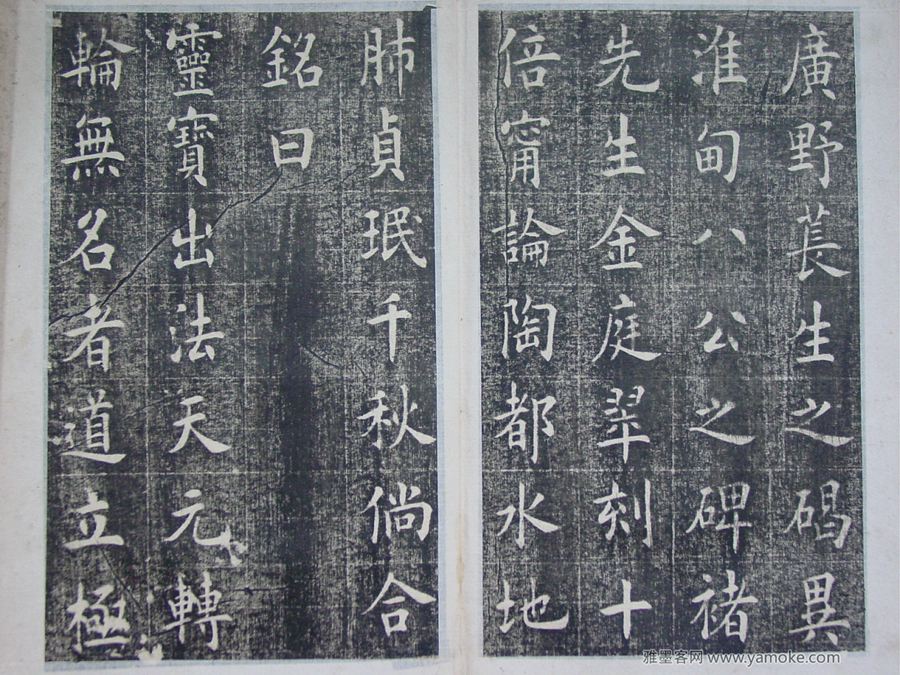 廣野萇生之碣異
淮甸八公之碑褚
先生金庭翠刻十
倍甯論陶都水地
肺貞珉千秋倘合
銘曰
靈寶出法天元轉
輪無名者道立極
雅墨客网 www.yamoke.com